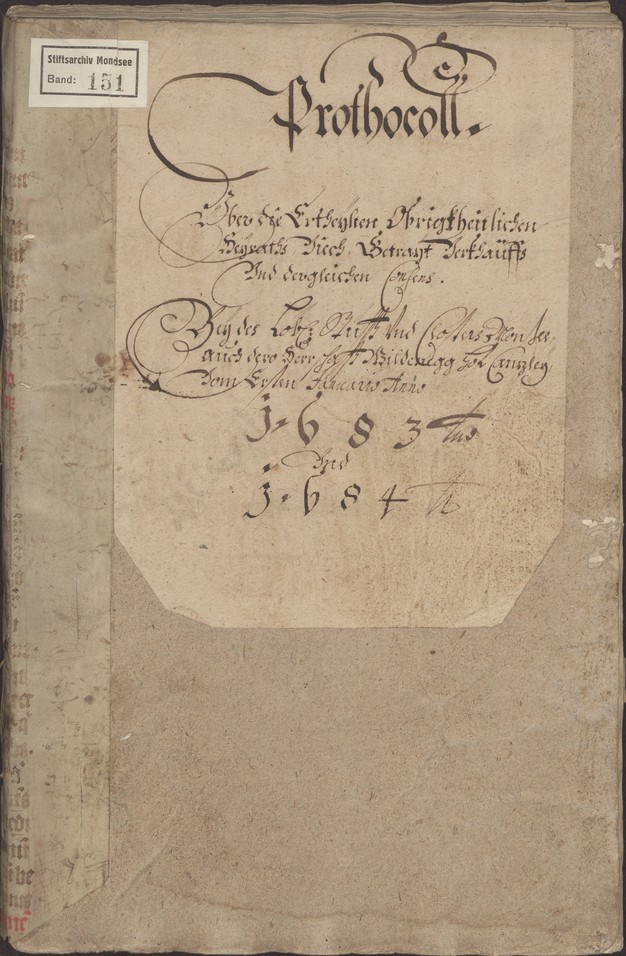 Stiftsarchiv Mondsee
Band: 151
Prothocoll.
Über die Ertheylten Obrigkheitlichen
Heyraths Verkhauffs
Und dergleichen Consens.
Bey des Löbl: Stüfft und Closters Monsee,
auch dero Herrschafft Wildenegg Hof Canzley
Vom Ersten Januario Anno
1683
Und
1684